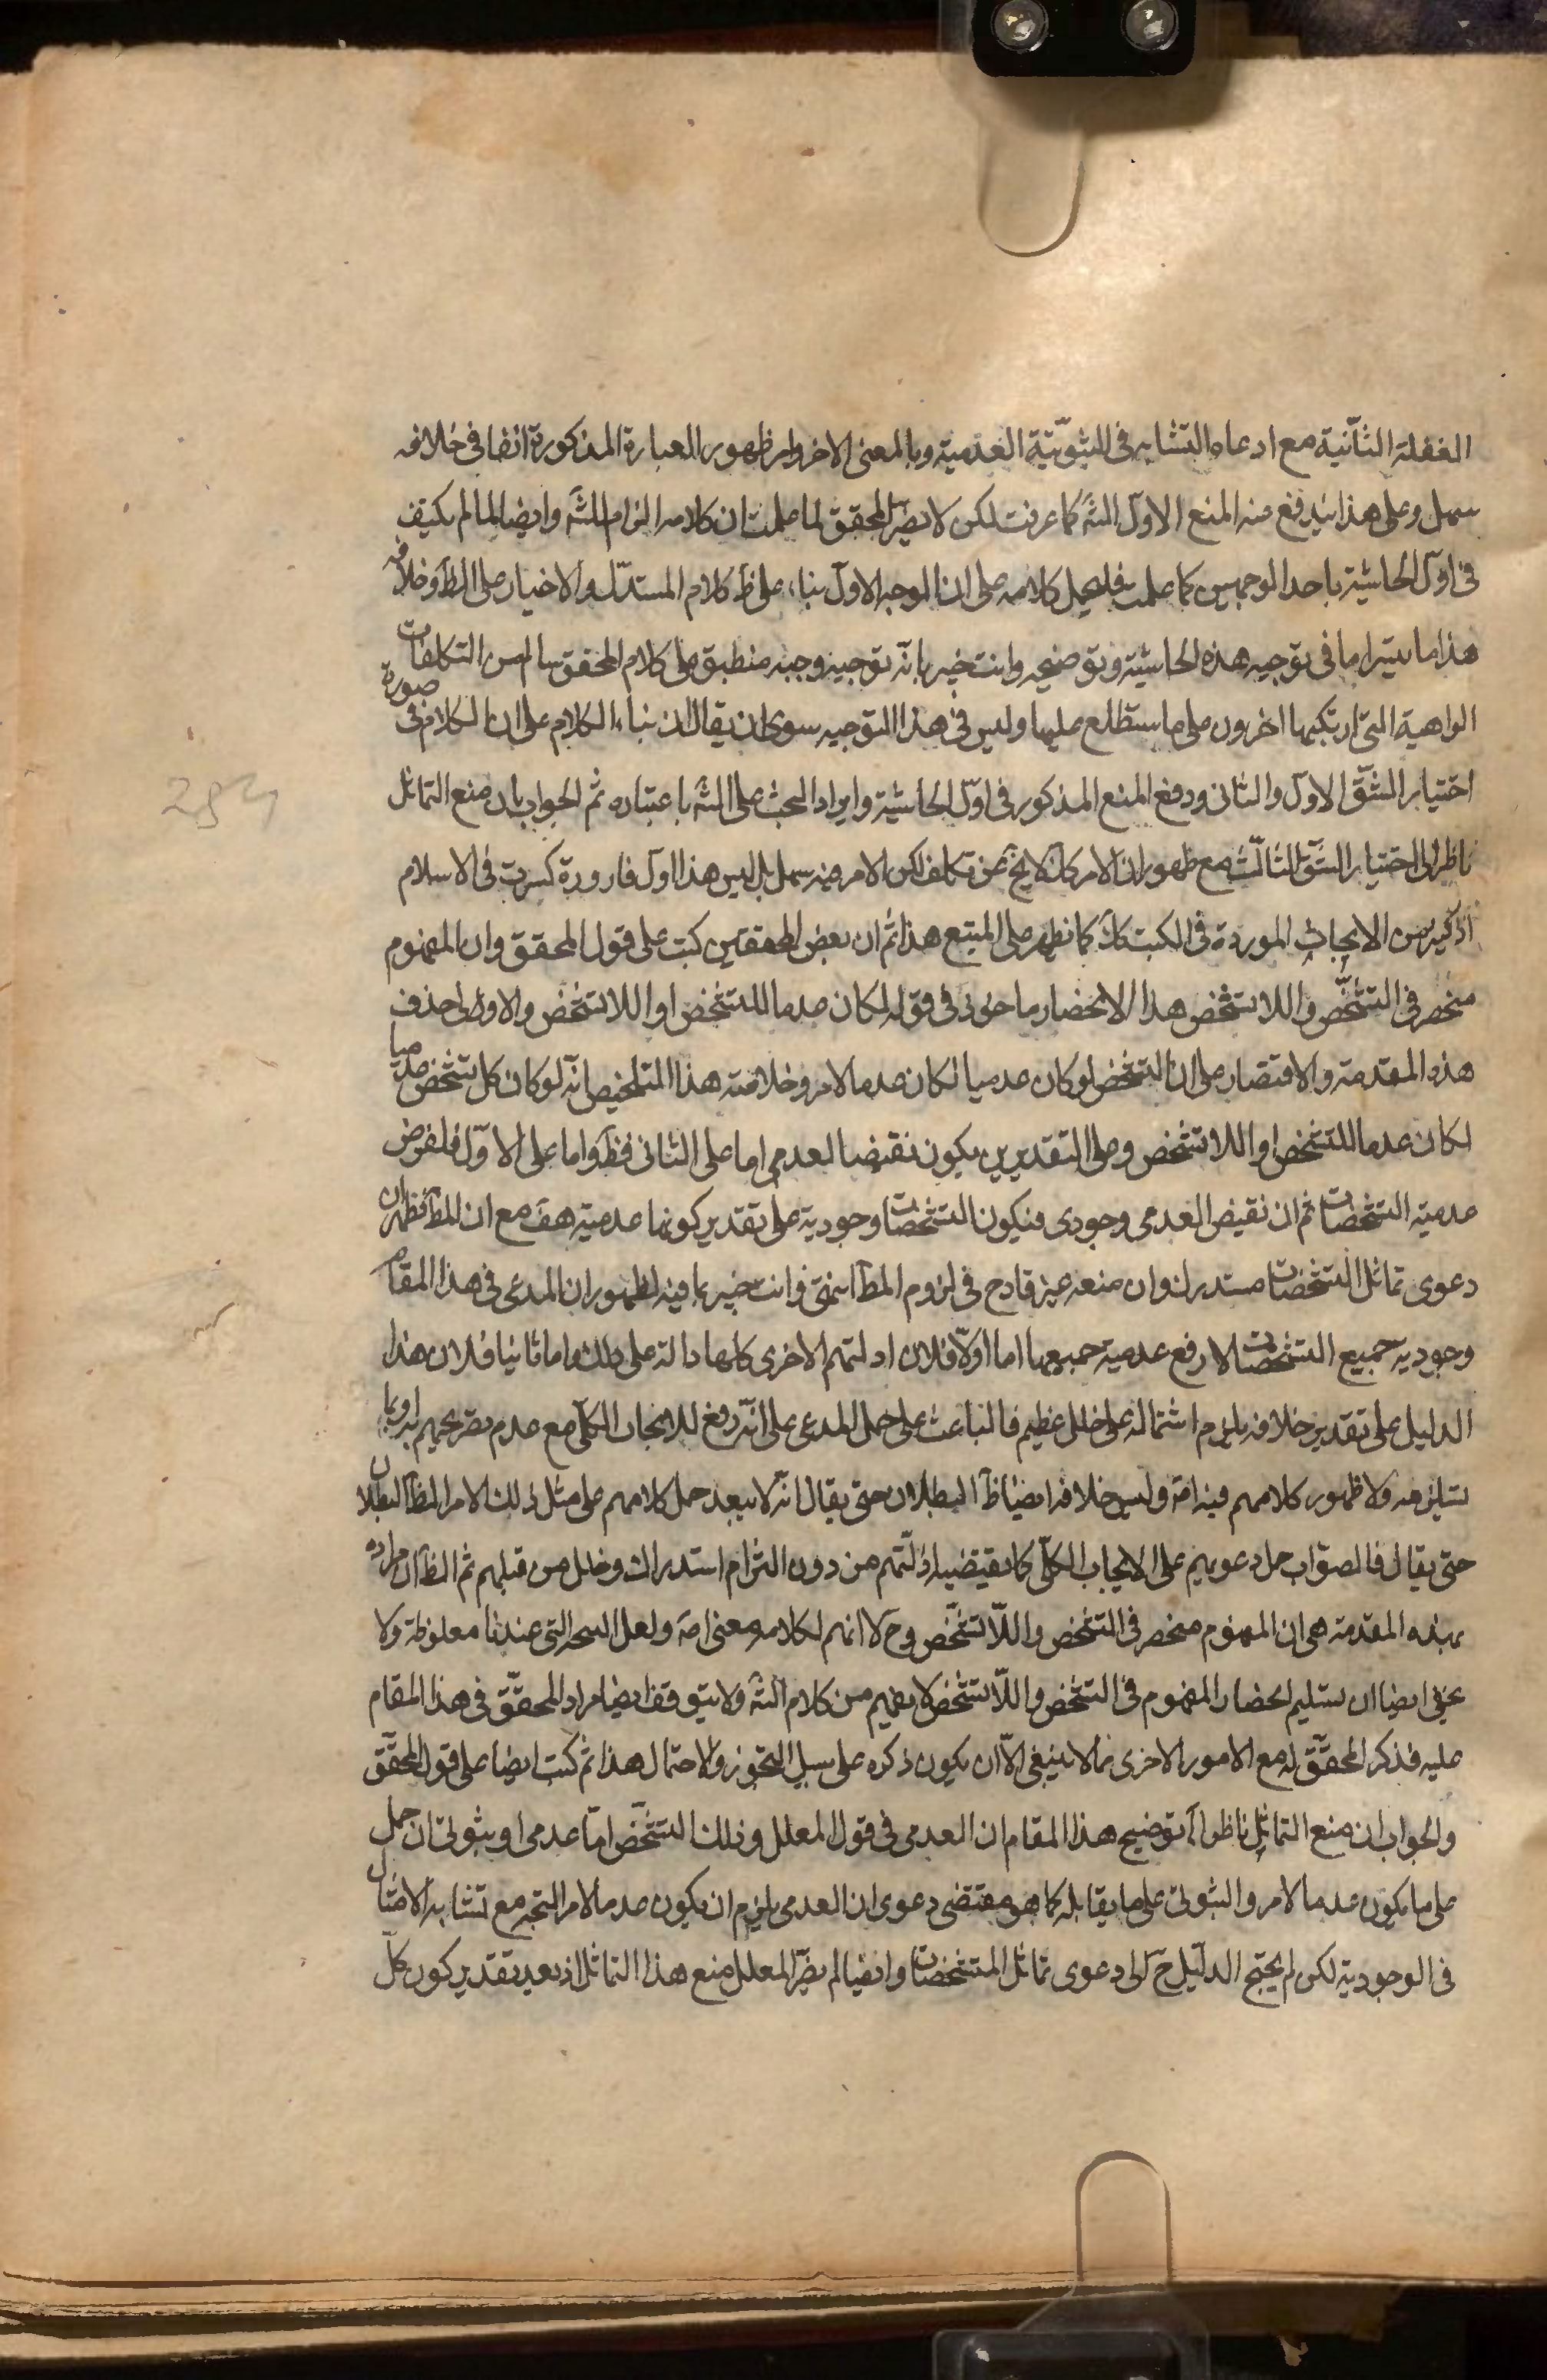 الغفلة الثانية مع ادعاء التشابه فى الثبوتية العدمية وبالمعنى الاخر وامر ظهور العبارة المذكورة انفا فى خلافه
سهل وعلى هذا يندفع عنه المنع الاول الشه كما عرفت لكن لا يضر المحقق لما علمت ان كلامه الزام للشه وايضا لما لم يكيف
فى اول الحاشية باحد الوجهين كما علمت فليحمل كلامه على ان الوجه الاول بناء على ظ كلام المستدل والاخيار على الظ وخلافه
هذا ما تيسر لنا فى توجيه هذه الحاشية وتوضيحه وانت خبير بانه توجيه وجيه منطبق على كلام المحقق سالم من التكلفات
الواهية التى ارتكبها اخرون على ما ستطلع عليها وليس فى هذا التوجيه سوى ان يقال ان بناء الكلام على ان الكلام فى صورة
اختيار الشق الاول والثانى ودفع المنع المذكور فى اول الحاشية وايراد البحث على الشه باعتباره ثم الجواب بان منع التماثل
ناظر الى اختيار الشق الثالث مع ظهور ان الامر كان لا يخ عن تكلف لكن الامر فيه سهل بل ليس هذا اول قارورة كسرت فى الاسلام
اذ كثير من الابحاث الموردة فى الكتب كك كما يظهر على المتتبع هذا ثم ان بعض المحققين كتب على قول المحقق وان المفهوم
منحصر فى التشخص واللا تشخص هذا الانحصار ماخوذ فى قوله لكان عدما للتشخص او اللا تشخص والاولى حذف
هذه المقدمة والاقتصار على ان التشخص لو كان عدميا لكان عدما لامر وخلاصة هذا التلخيص انه لو كان كل تشخص عدميا
لكان عدما للتشخص او اللا تشخص وعلى التقديرين يكون نقيضا لعدمى اما على الثانى فظ واما على الاول فلفرض
عدمية التشخصات ثم ان نقيض العدمى وجودى فيكون التشخصات وجودية على تقدير كونها عدمية هف مع ان المط فظهر ان
دعوى تماثل التشخصات مستدرك وان منعه غير قادح فى لزوم المط انتهى وانت خبير بما فيه لظهور ان المدعى فى هذا المقام
وجودية جميع التشخصات لا رفع عدمية جميعها اما اولا فلان ادلتهم الاخرى كلها دالة على ذلك واما ثانيا فلان هذا
الدليل على تقدير خلافه يلزم اشتماله على خلل عظيم فالباعث على حمل المدعى على انه رفع للايجاب الكلى مع عدم تصريحهم به او بما
يستلزمه ولا ظهور كلامهم فيه اصة وليس خلافه ايضا ظ البطلان حتى يقال انه لا يبعد حمل كلامهم على مثل ذلك الامر الظ البطلان
حتى يقال فالصواب حمل دعويهم على الايجاب الكلى كما يقتضيه ادلتهم من دون التزام استدراك وخلل من قبلهم ثم الظ ان مراده
بهذه المقدمة هى ان المفهوم منحصر فى التشخص واللا تشخص وح لا افهم لكلامه معنى اصة ولعل النسخة التى عندنا مغلوطة ولا
يخفى ايضا ان تسليم انحصار المفهوم فى التشخص واللا تشخص لا يفهم من كلام الشه ولا يتوقف ايضا مراد المحقق فى هذا المقام
عليه فذكر المحقق له مع الامور الاخرى مما لا ينبغى الا ان يكون ذكره على سبيل التجوز والاحتمال هذا ثم كتب ايضا على قول المحقق
والجواب ان منع التماثل ناظر الخ توضيح هذا المقام ان العدمى فى قول المعلل وذلك التشخص اما عدمى او ثبوتى ان حمل
على ما يكون عدما لامر والثبوتى على ما يقابله كما هو مقتضى دعوى ان العدمى يلزم ان يكون عدما لامر اتجه مع تشابه الامثال
فى الوجودية لكن لم يحتج الدليل ح الى دعوى تماثل التشخصات وايضا لم يضر المعلل منع هذا التماثل اذ بعد تقدير كون كل